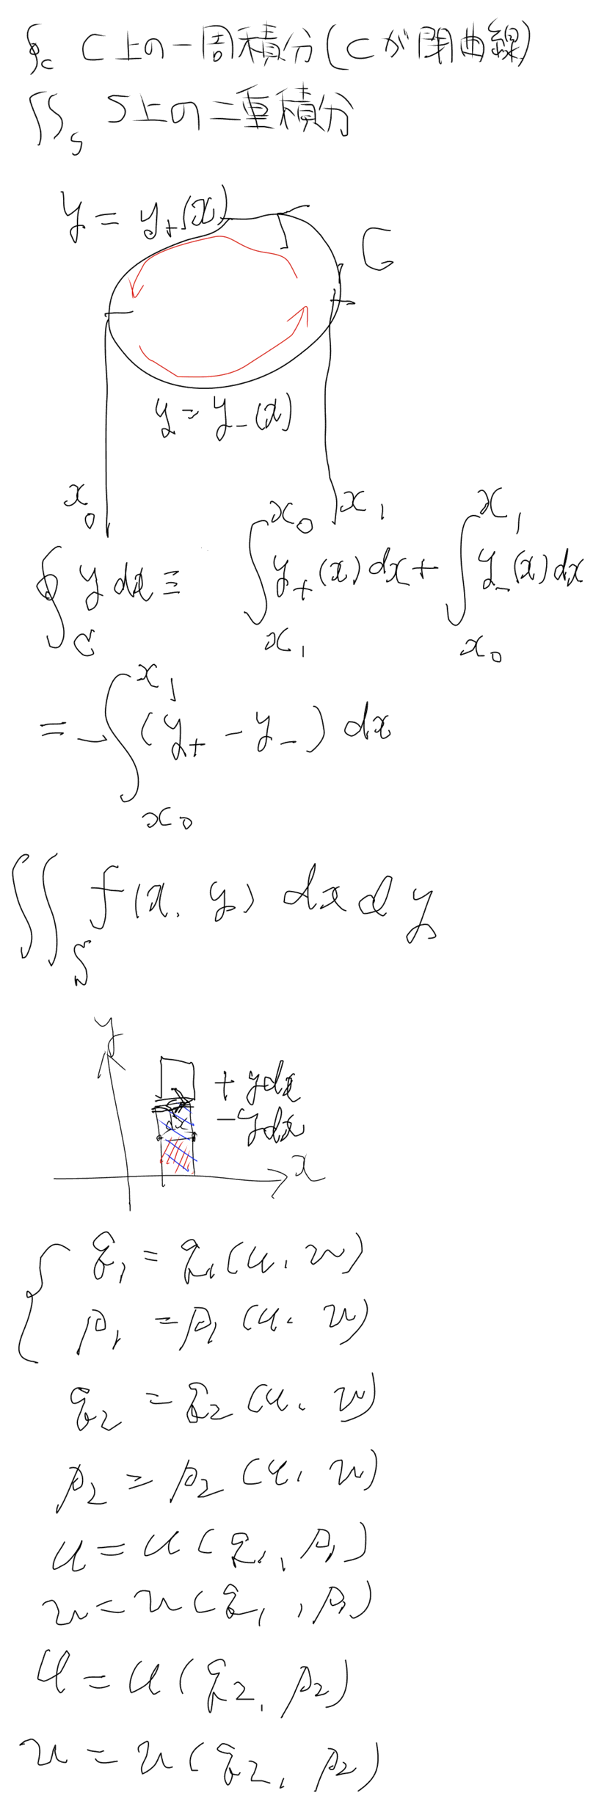 ∮c C上の一周積分(Cが閉曲線)
∬s S上の二重積分
y = y₊(x)
C
y = y₋(x)
x₀ x₁
∮_C y dx ≡ ∫_{x₁}^{x₀} y₊(x) dx + ∫_{x₀}^{x₁} y₋(x) dx
= -∫_{x₀}^{x₁} (y₊ - y₋) dx
∬_S f(x, y) dx dy
y
+ydx
dx
-ydx
x
q₁ = q₁(u, v)
p₁ = p₁(u, v)
q₂ = q₂(u, v)
p₂ = p₂(u, v)
u = u(q₁, p₁)
v = v(q₁, p₁)
u = u(q₂, p₂)
v = v(q₂, p₂)